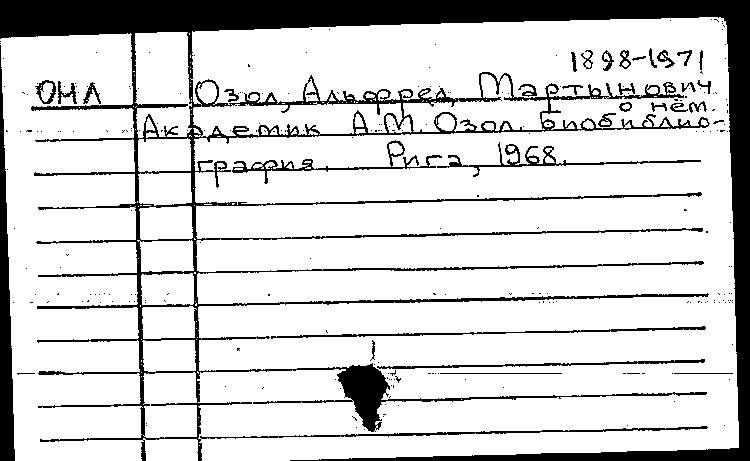 1898-1971
ОНЛ Озол, Альфред Мартынович
о нём.
Академик А.М. Озол. Биобиблио-
графия. Рига, 1968.